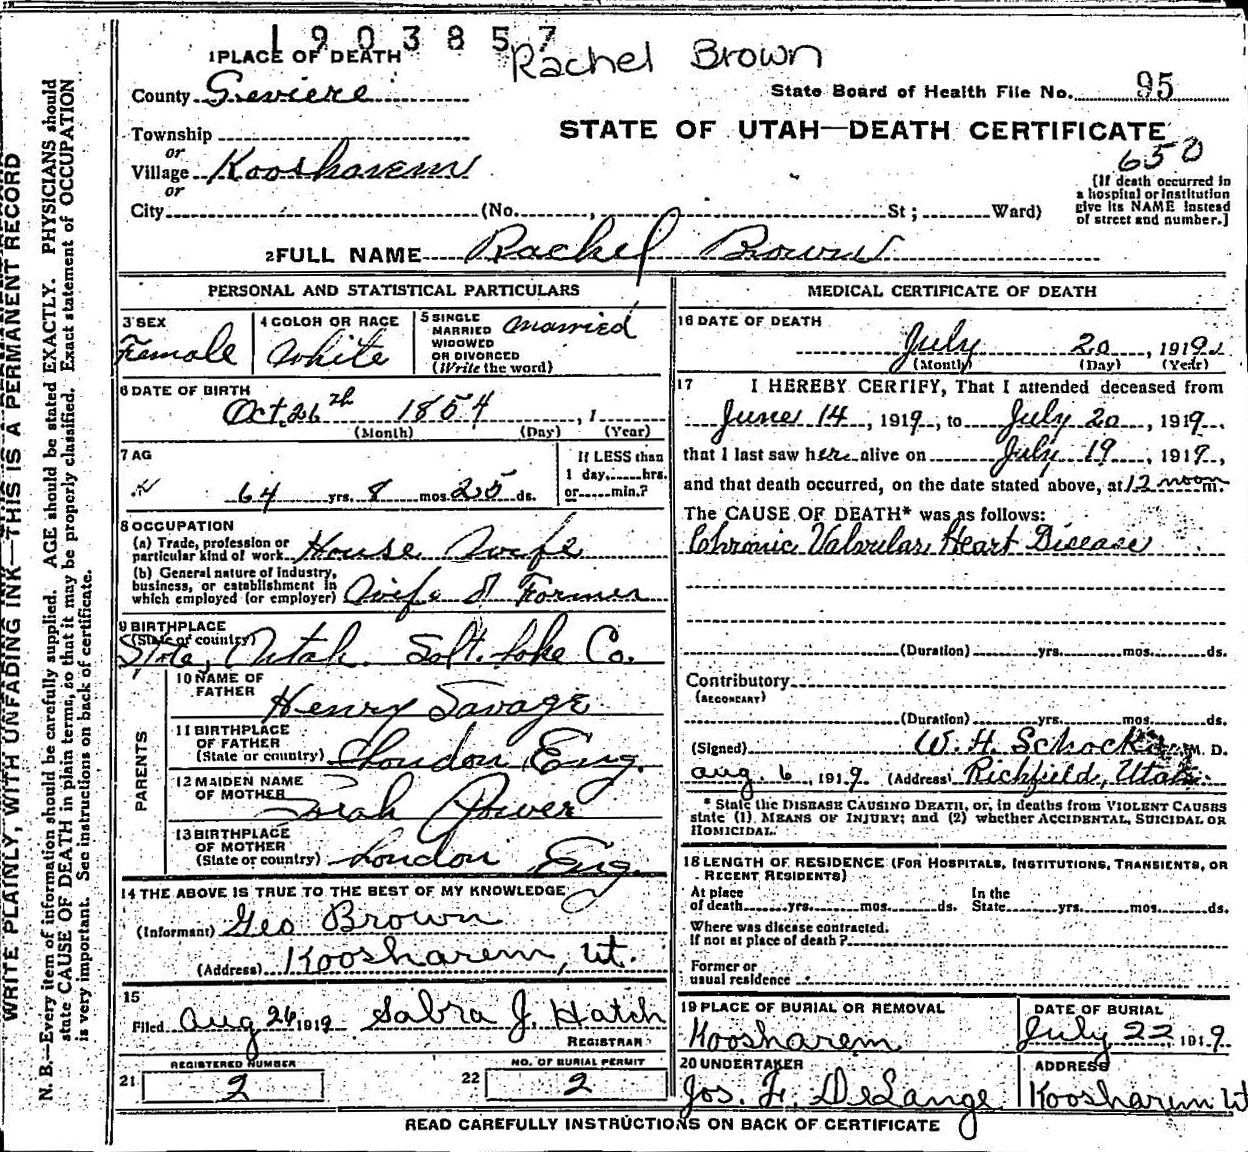 1903857
Rachel Brown
1 PLACE OF DEATH
County Seviere
State Board of Health File No. 95
Township
STATE OF UTAH—DEATH CERTIFICATE
or
Village Koosharem
650
or
City (No. , St ; Ward)
[If death occurred in
a hospital or institution
give its NAME instead
of street and number.]
2 FULL NAME Rachel Brown
PERSONAL AND STATISTICAL PARTICULARS
3 SEX
Female
4 COLOR OR RACE
White
5 SINGLE
MARRIED
WIDOWED
OR DIVORCED
(Write the word)
Married
6 DATE OF BIRTH
Oct. 26th 1854 , 1
(Month) (Day) (Year)
7 AG
64 yrs. 8 mos. 25 ds.
If LESS than
1 day, hrs.
or min.?
8 OCCUPATION
(a) Trade, profession or
particular kind of work House Wife
(b) General nature of industry,
business, or establishment in
which employed (or employer) Wife of Farmer
9 BIRTHPLACE
(State or country)
State, Utah. Salt. Lake Co.
PARENTS
10 NAME OF
FATHER
Henry Savage
11 BIRTHPLACE
OF FATHER
(State or country) London, Eng.
12 MAIDEN NAME
OF MOTHER
Sarah
13 BIRTHPLACE
OF MOTHER
(State or country) London Eng.
14 THE ABOVE IS TRUE TO THE BEST OF MY KNOWLEDGE
(Informant) Geo Brown
(Address) Koosharem, Ut.
15
Filed Aug 26 1919 Sabra J. Hatch
REGISTRAR
REGISTERED NUMBER
21 2
NO. OF BURIAL PERMIT
22 2
MEDICAL CERTIFICATE OF DEATH
16 DATE OF DEATH
July 20 , 1919
(Month) (Day) (Year)
17 I HEREBY CERTIFY, That I attended deceased from
June 14 , 1919 , to July 20 , 1919 .
that I last saw her alive on July 19 , 1919 ,
and that death occurred, on the date stated above, at 12 noon m.
The CAUSE OF DEATH* was as follows:
Chronic Valvular Heart Disease
(Duration) yrs. mos. ds.
Contributory
(SECONDARY)
(Duration) yrs. mos. ds.
(Signed) W. H. M. D.
Aug. 6 , 1919. (Address) Richfield, Utah.
* State the DISEASE CAUSING DEATH, or, in deaths from VIOLENT CAUSES
state (1) MEANS OF INJURY; and (2) whether ACCIDENTAL, SUICIDAL OR
HOMICIDAL.
18 LENGTH OF RESIDENCE (FOR HOSPITALS, INSTITUTIONS, TRANSIENTS, OR
RECENT RESIDENTS)
At place
of death yrs. mos. ds.
In the
State yrs. mos. ds.
Where was disease contracted.
If not at place of death?
Former or
usual residence
19 PLACE OF BURIAL OR REMOVAL
Koosharem
DATE OF BURIAL
July 22 , 1919
20 UNDERTAKER
Jos. F. DeLange
ADDRESS
Koosharem Ut
READ CAREFULLY INSTRUCTIONS ON BACK OF CERTIFICATE
WRITE PLAINLY, WITH UNFADING INK—THIS IS A PERMANENT RECORD
N. B.—Every item of information should be carefully supplied. AGE should be stated EXACTLY. PHYSICIANS should
state CAUSE OF DEATH in plain terms, so that it may be properly classified. Exact statement of OCCUPATION
is very important. See instructions on back of certificate.